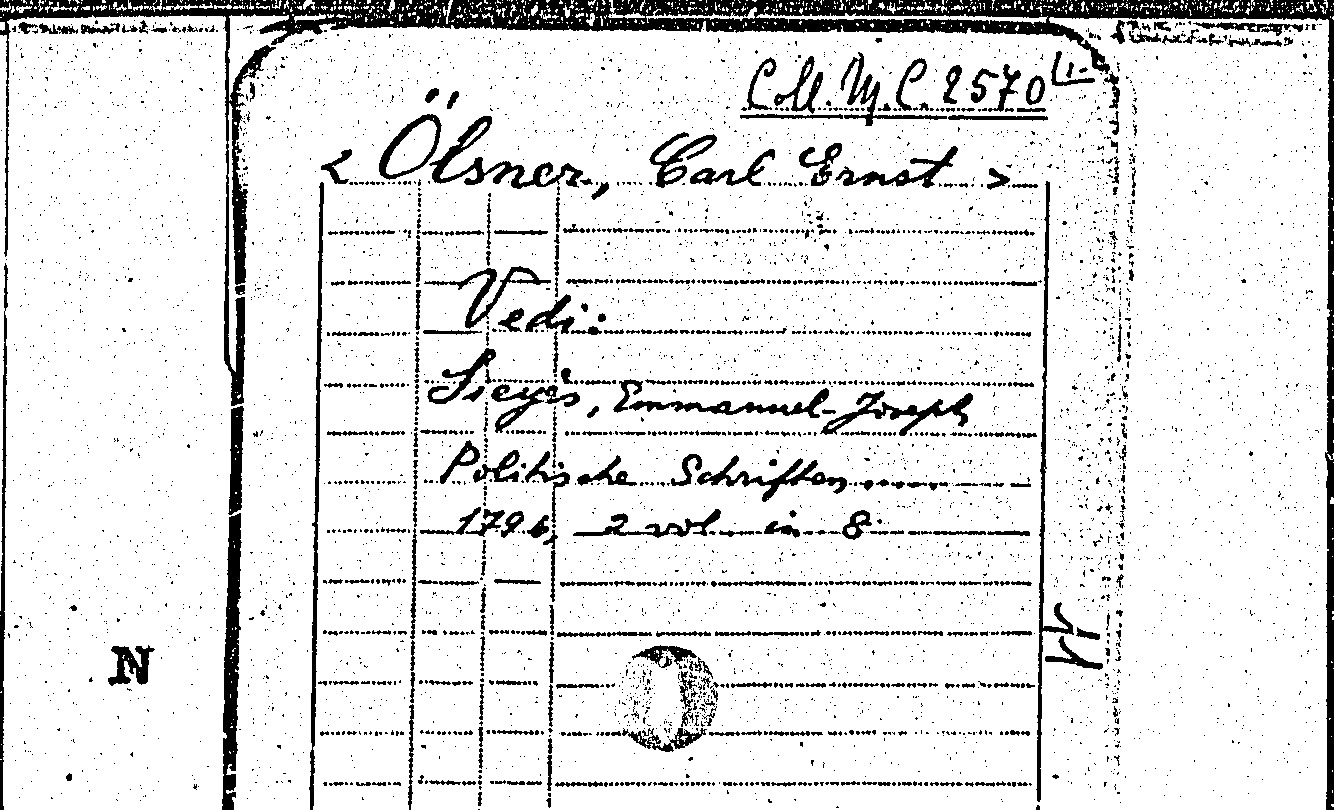 Coll. M. C. 2570 /1-
< Ölsner, Carl Ernst >
Vedi:
Sieyès, Emmanuel-Joseph
Politische Schriften......
1796, 2 vol. in 8.
N